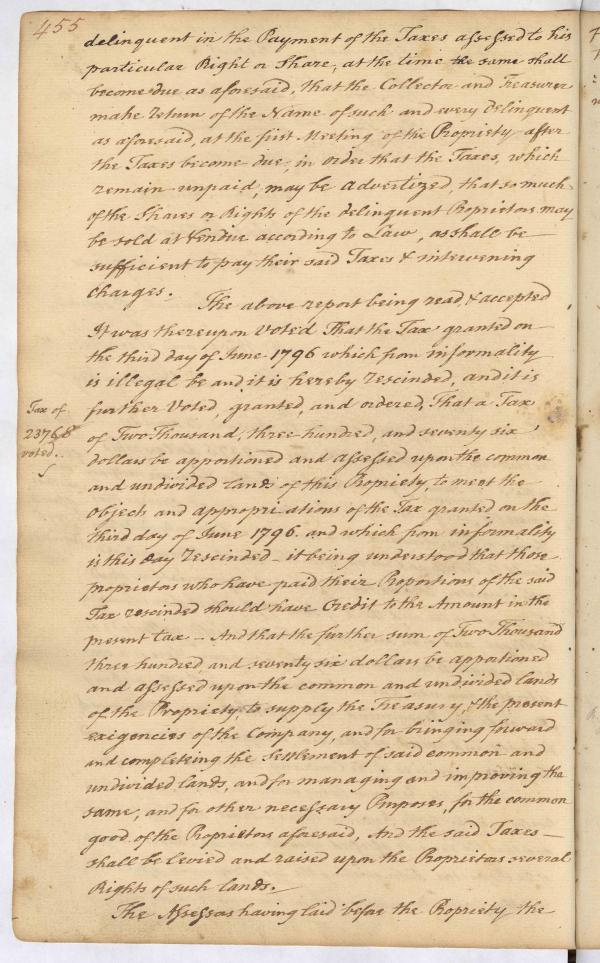 455
delinquent in the Payment of the Taxes assessed to his
particular Right or Share, at the time the same shall
become due as aforesaid, that the Collector and Treasurer
make return of the Name of such and every Delinquent
as aforesaid, at the first Meeting of the Propriety after
the Taxes become due, in order that the Taxes, which
remain unpaid, may be advertized, that so much
of the Shares or Rights of the delinquent Proprietors may
be sold at Vendue according to Law, as shall be
sufficient to pay their said Taxes & intervening
Charges.
The above report being read & accepted
It was thereupon Voted That the Tax granted on
the third day of June 1796 which from informality
is illegal be and it is hereby rescinded, and it is
further Voted, granted, and ordered, That a Tax
Tax of
2376 $
voted.
of Two Thousand, three hundred, and seventy six
dollars be apportioned and assessed upon the common
and undivided lands of this Propriety, to meet the
objects and appropriations of the Tax granted on the
third day of June 1796 and which from informality
is this day rescinded – it being understood that those
proprietors who have paid their Proportions of the said
Tax rescinded should have Credit to the Amount in the
present tax – And that the further sum of Two Thousand
three hundred and seventy six dollars be apportioned
and assessed upon the common and undivided lands
of the Propriety, to supply the Treasury, & the present
exigencies of the Company, and for bringing forward
and completing the Settlement of said common and
undivided lands, and for managing and improving the
same, and for other necessary Purposes, for the common
good of the Proprietors aforesaid, And the said Taxes –
shall be levied and raised upon the Proprietors several
Rights of such lands.
The Assessors having laid before the Propriety the